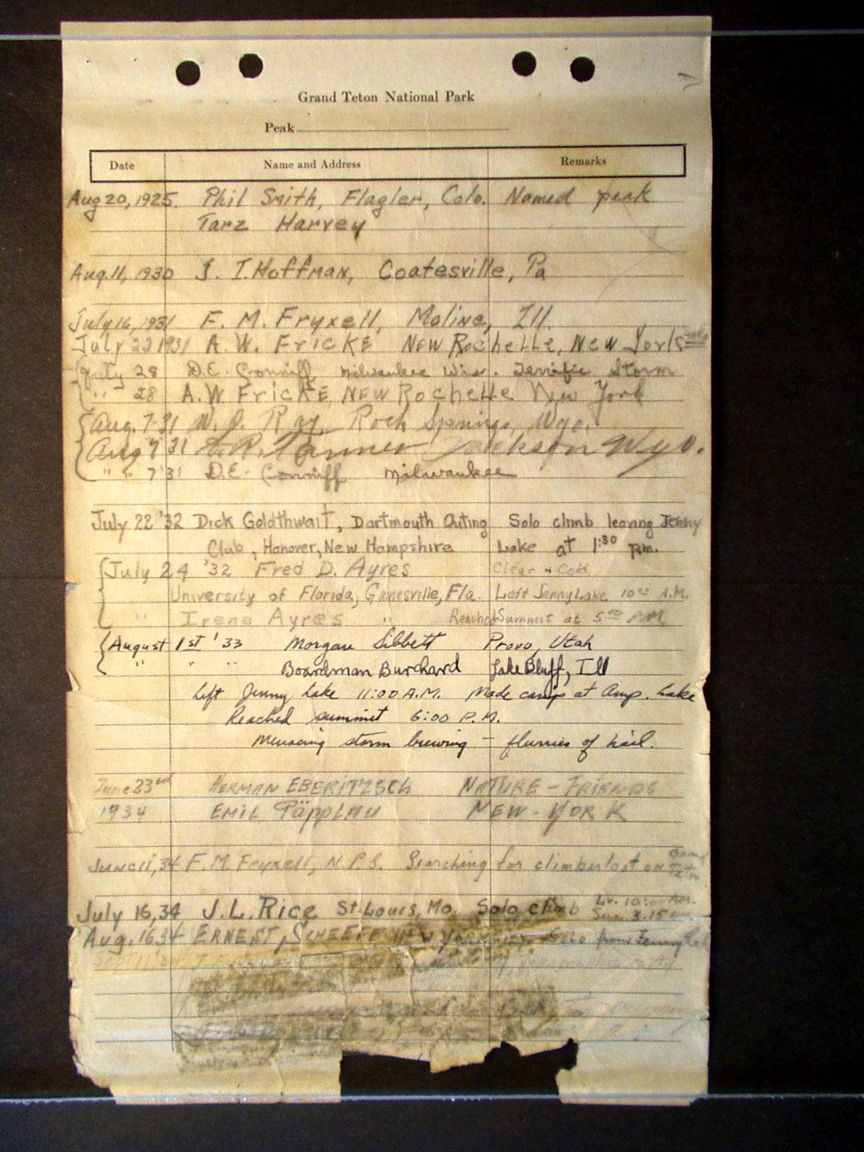 Grand Teton National Park
Peak
Date Name and Address Remarks
Aug 20, 1925. Phil Smith, Flagler, Colo. Named peak
Tarz Harvey
Aug. 11, 1930 J. I. Hoffman, Coatesville, Pa
July 16, 1931 F. M. Fryxell, Moline, Ill.
July 22 1931 A. W. FRICKE NEW Rochelle, NEW York
July 28 D.E. Conniff Milwaukee Wis. Terrific Storm
" - 28 A.W FRICKE NEW Rochelle New York
Aug. 7-31 W. J. Ray Rock Springs, Wyo.
Aug 7 '31 Tanner Jackson Wyo.
" " 7 '31 D.E. Conniff Milwaukee
July 22 '32 Dick Goldthwait, Dartmouth Outing Solo climb leaving Jenny
Club, Hanover, New Hampshire Lake at 1:30 p.m.
July 24 '32 Fred D. Ayres Clear & Cold
University of Florida, Gainesville, Fla. Left Jenny Lake 10:00 A.M.
" Irene Ayres " Reached Summit at 5:00 P.M
August 1st '33 Morgan Sibbett Provo, Utah
" " " Boardman Burchard Lake Bluff, Ill
Left Jenny Lake 11:00 A.M. Made camp at Amp. Lake
Reached summit 6:00 P.M.
Menacing storm brewing - flurries of hail.
June 23rd HERMAN EBERITZSCH NATURE-FRIENDS
1934 EMIL PÄPPLAU NEW-YORK
June 11, 34 F. M. Fryxell, N.P.S. Searching for climber lost on Grand Teton
July 16, 34 J. L. Rice St. Louis, Mo. Solo climb Lv. 10:00 A.M.
Sum. 3.15
Aug. 16 34 ERNEST, New Solo from Jenny